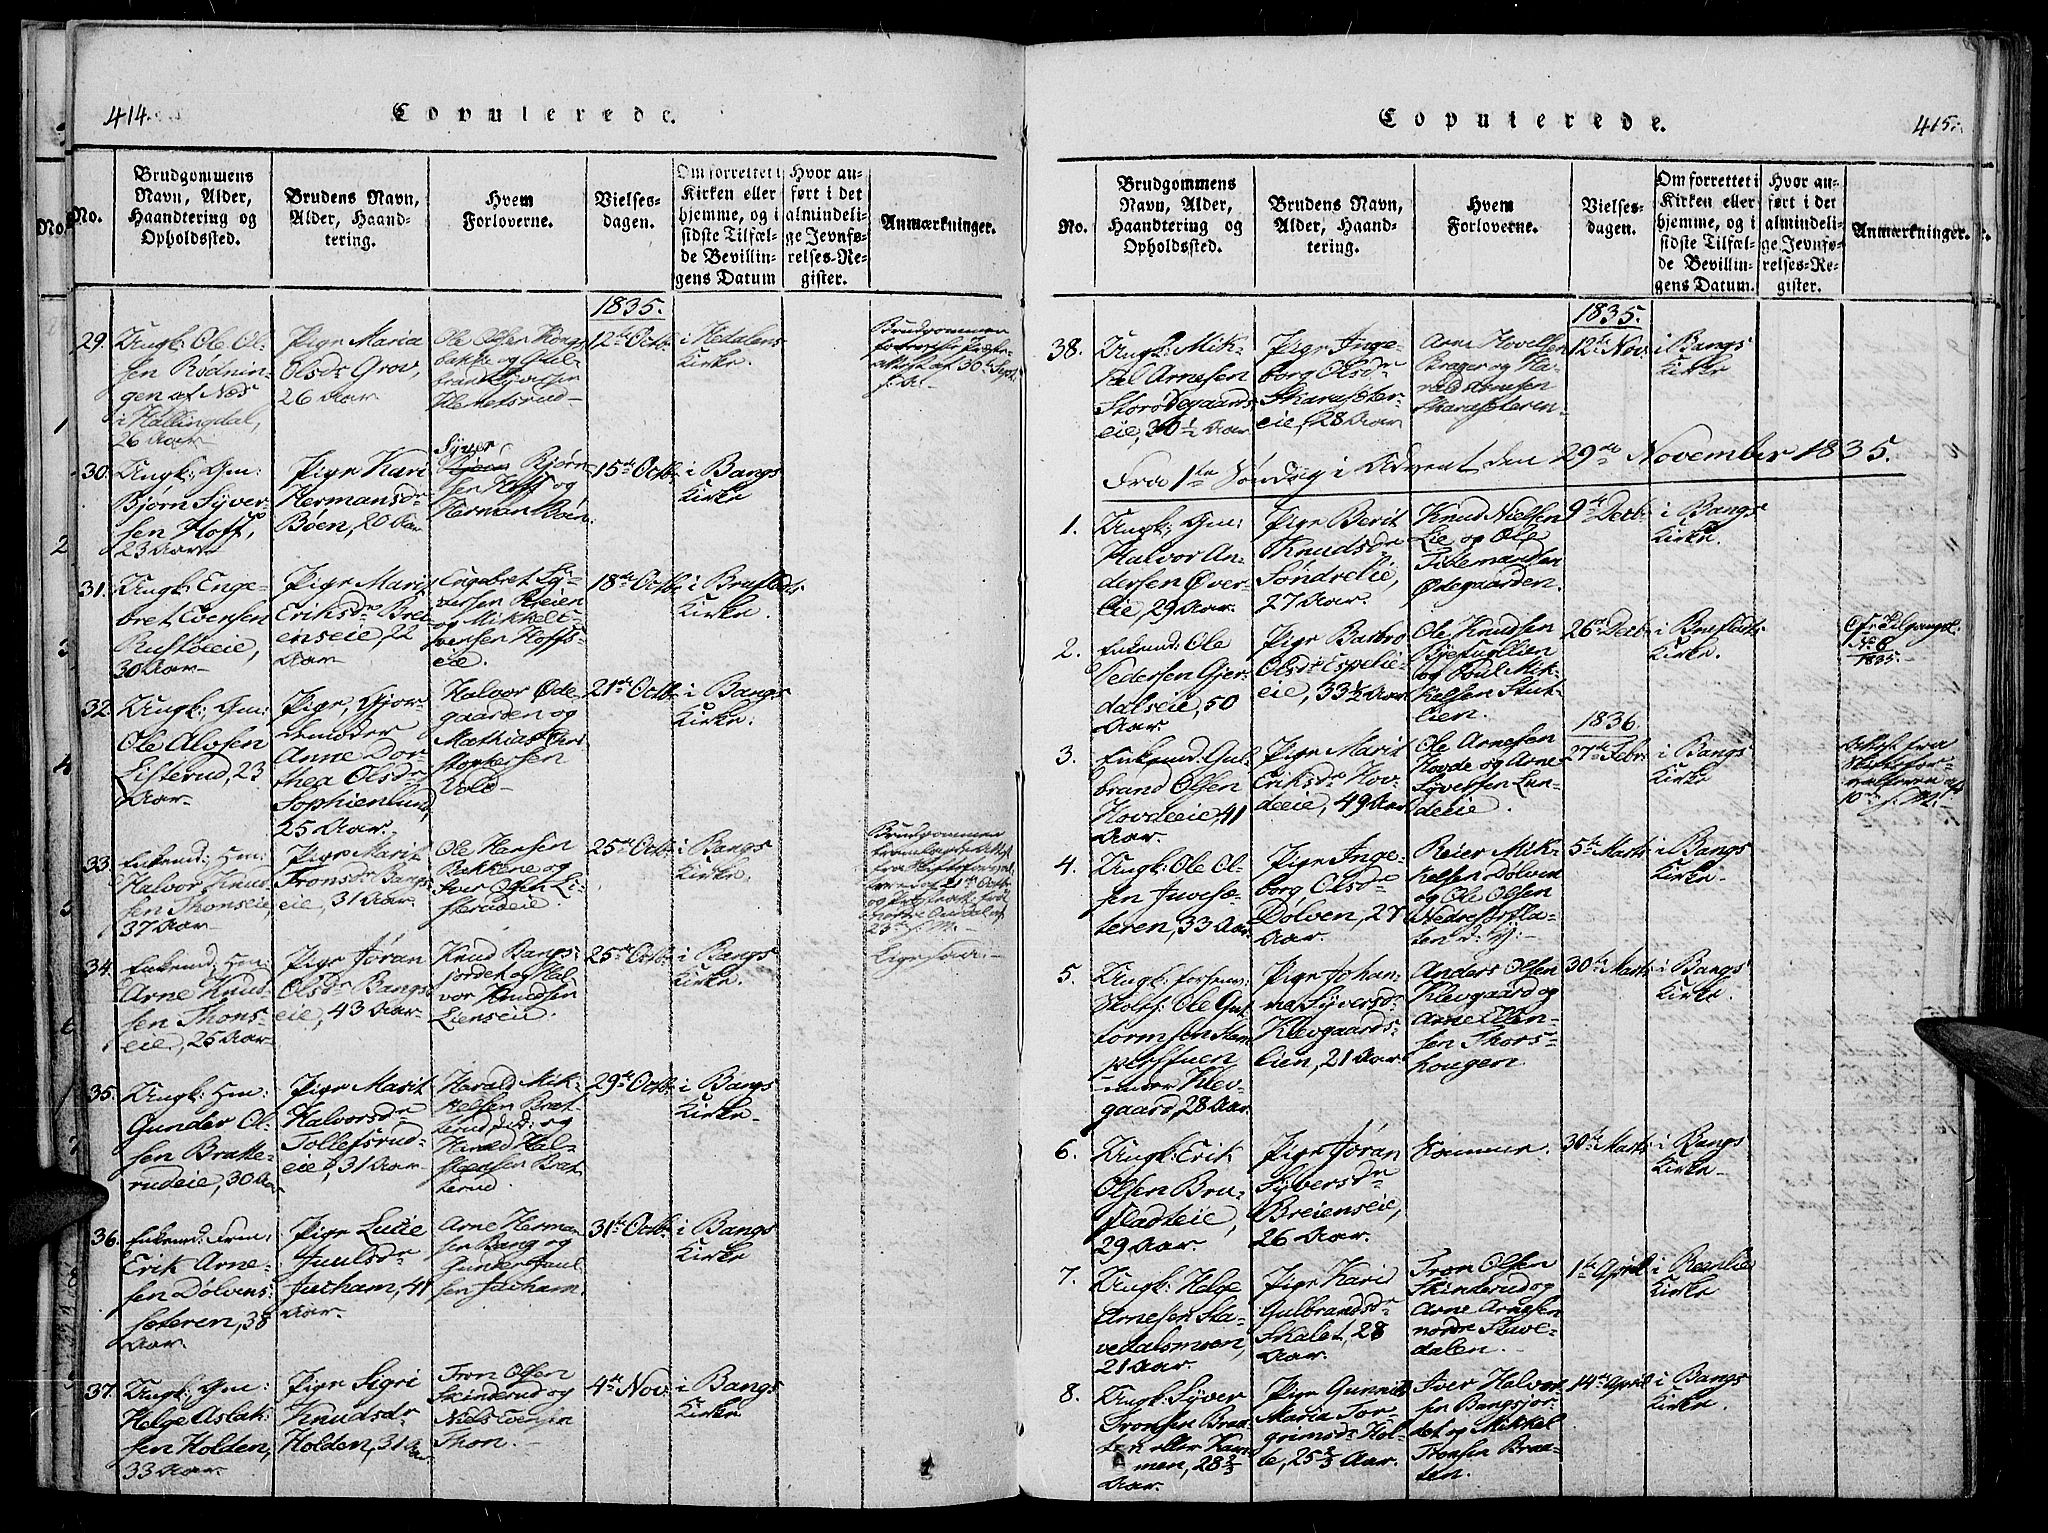 414.
Copulerede.
No.
No.
Brudgommens
Navn, Alder,
Haandtering og
Opholdssted.
Brudens Navn,
Alder, Haand-
tering.
Hvem
Forloverne.
Vielses-
dagen.
Om forrettet i
Kirken eller
hjemme, og i
sidste Tilfæl-
de Bevillin-
gens Datum
Hvor an-
ført i det
almindeli-
ge Jevnfø-
relses-Re-
gister.
Anmærkninger.
1835.
29.
Ungk: Ole Ol-
sen Rødnin-
gen af Næs
i Hallingdal,
26 Aar
Pige Maria
Olsdr Grov,
26 Aar.
Ole Olsen
og Gul-
brand Syversen
12te Octb.
i Hedalens
Kirke.
Brudgommen
30.
Ungk: Gm:
Bjørn Syver-
sen Hoff,
23 Aar
Pige Kari
Hermansdr
Bøen, 20 Aar
Syver
Bjørn-
sen Hoff og
Herman Bøen.
15de Octb.
i Bangs
Kirke
31.
Ungk: Enge-
bret Evensen
Rustøieie,
30 Aar
Pige Marit
Eriksdr Brei-
enseie, 22
Aar
Engebret Sy-
versen Breien
og Mikkel I-
versen Hoffs-
eie.
18de Octb.
i Bruflats
Kirke.
32.
Ungk: Gm:
Ole Alvsen
Listerud, 23
Aar
Pige, Gjor-
demoder
Anne Dor-
thea Olsdr
Sophienlund,
25 Aar.
Halvor Øde-
gaarden og
Mathias Chri-
stophersen
Vold
21de Octb.
i Bangs
Kirke.
33.
Enkemd: Hm:
Halvor Knud-
sen Thonseie,
37 Aar
Pige Marit
Tronsdr Bangs-
eie, 31 Aar.
Ole Hansen
Bakkene og
Iver Olsen Li-
sterudeie.
25de Octb.
i Bangs
Kirke.
Brudgommen
34.
Enkemd: Hm:
Arne Knud-
sen Thons-
eie, 25 Aar
Pige Jøran
Olsdr Bangs-
eie, 43 Aar
Knud Bangs-
jordet og Hal-
vor Knudsen
Lienseie.
25de Octb.
i Bangs
Kirke.
Ligesaa.
35.
Ungk: Hm:
Gunder Ol-
sen Brakke-
rudeie, 30 Aar
Pige Marit
Halvorsdr
Tollefsrud-
eie, 31 Aar
Harald Mik-
kelsen Brat-
terud og
Harald Hel-
gesen Brat-
terud.
29de Octb.
i Bangs
Kirke.
36.
Enkemd: Frm:
Erik Arne-
sen Dølven-
sæteren, 38
Aar.
Pige Lucie
Juulsdr
Juvkam, 41
Aar.
Arne Herman-
sen Bang og
Gunder Paul-
sen Juvkam.
31te Octb.
i Bangs
Kirke
37.
Ungk: Gm:
Helge Aslak-
sen Holden,
33 Aar.
Pige Sigri
Knudsdr
Holden, 31 Aar
Tron Olsen
Skinderud og
Niels Evensen
Thon.
4de Nov.
i Bangs
Kirke
Copulerede.
415.
No.
Brudgommens
Navn, Alder,
Haandtering og
Opholdssted.
Brudens Navn,
Alder, Haand-
tering.
Hvem
Forloverne.
Vielses-
dagen.
Om forrettet i
Kirken eller
hjemme, og i
sidste Tilfæl-
de Bevillin-
gens Datum.
Hvor an-
ført i det
almindeli-
ge Jevnfø-
relses-Re-
gister.
Anmærkninger.
1835.
38.
Ungk: Mik-
kel Arnesen
Storødegaards-
eie, 30½ Aar
Pige Inge-
borg Olsdr
Skarasæter-
eie, 28 Aar
Arne Hovelsen
Krager og Ha-
rald Arnesen
Skarasæteren
12te Nov.
i Bangs
Kirke
Fra 1ste Søndag i Advent den 29de November 1835.
1.
Ungk: Gm:
Halvor An-
dersen Øver-
lie, 29 Aar.
Pige Berit
Knudsdr
Søndrelie,
27 Aar.
Knud Nielsen
Lie og Ole
Tidemandsen
Ødegaarden.
9de Decbr.
i Bangs
Kirke.
2.
Enkemd: Ole
Pedersen Gjer-
dalseie, 50
Aar.
Pige Barbro
Olsdr Espelie-
eie, 33½ Aar
Ole Knudsen
Byefuglien
og Poul Mik-
kelsen Stut-
lien.
26de Decbr.
i Bruflats
Kirke.
Cfr Tilgangsl.
No 6
1835.
1836.
3.
Enkemd: Gul-
brand Olsen
Hovdeeie, 41
Aar.
Pige Marit
Eriksdr Hov-
deeie, 49 Aar
Ole Arnesen
Hovde og Arne
Syversen Lun-
deeie.
27de Febr.
i Bangs
Kirke
Attest fra
Skifte for-
valteren af
10de f. M.
4.
Ungk: Ole Ol-
sen Juvesæ-
teren, 33 Aar.
Pige Inge-
borg Olsdr
Dølven, 27
Aar.
Reier Mik-
kelsen Dølven
og Ole Olsen
Nedrefosfla-
ten d: y:
5te Marts
i Bangs
Kirke.
5.
Ungk:
Ole Gut-
tormsen
Klev-
gaard, 28 Aar.
Pige Johan-
ne Syversdr
Klevgaards-
lien, 21 Aar.
Anders Olsen
Klevgaard og
Arne Ellin-
sen Thors-
hougen.
30te Marts
i Bangs
Kirke.
6.
Ungk: Erik
Olsen Bru-
fladteie,
29 Aar.
Pige Jøran
Syversdr
Breienseie,
26 Aar.
Sommer.
30te Marts
i Bangs
Kirke
7.
Ungk: Helge
Arnesen Sta-
vedalsmoen,
21 Aar.
Pige Kari
Gulbrandsdr
Skalet, 28
Aar.
Tron Olsen
Skinderud og
Arne Arnesen
nordre Stave-
dalen.
1te April
i Reinlie
Kirke
8.
Ungk: Syver
Tronsen Braa-
ten eller Kam-
men, 28⅔
Aar.
Pige Gunnild
Maria Tor-
grimsdr Hol-
te, 25⅔ Aar.
Iver Halvor-
sen Bangsjor-
det og Mikkel
Tronsen Braa-
ten.
14de April
i Bangs
Kirke.